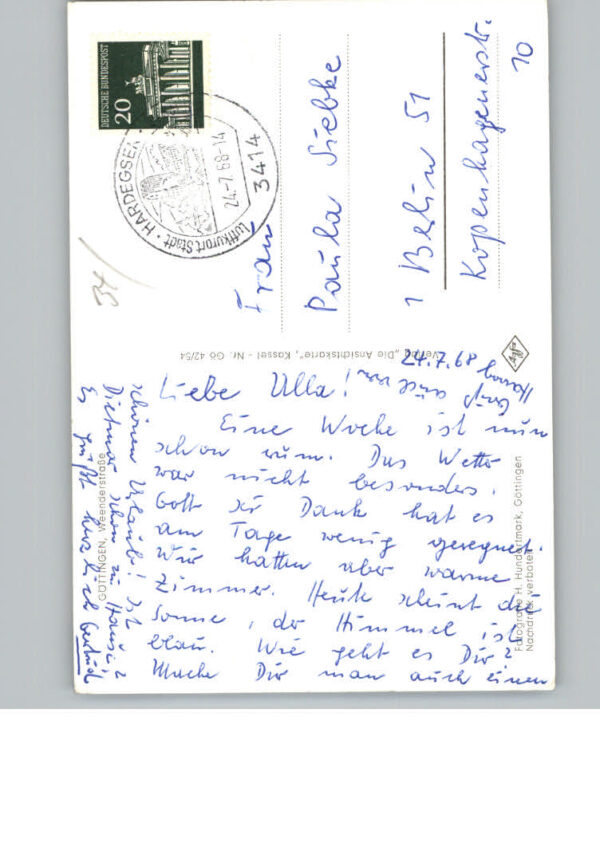 DEUTSCHE BUNDESPOST
20
HARDEGSEN
Luftkurort Stadt
24.-7.68-14
3414
34
Frau
Paula Siebke
1 Berlin 51
Kopenhagenerstr.
10
Verlag „Die Ansichtskarte“, Kassel - Nr. Gö 42/54
Agfa
24.7.68
Liebe Ulla!
Gruß von
Eine Woche ist nun
schon rum. Das Wetter
war nicht besonders.
Gott sei Dank hat es
am Tage wenig geregnet.
Wir hatten aber warme
Zimmer. Heute scheint die
Sonne, der Himmel ist
blau. Wie geht es Dir?
Mache Dir man auch einen
schönen Urlaub! Ist
Dietmar schon zu Hause?
Es grüßt herzlich Gertrud
GÖTTINGEN, Weenderstraße
Fotografie H. Hundertmark, Göttingen
Nachdruck verboten